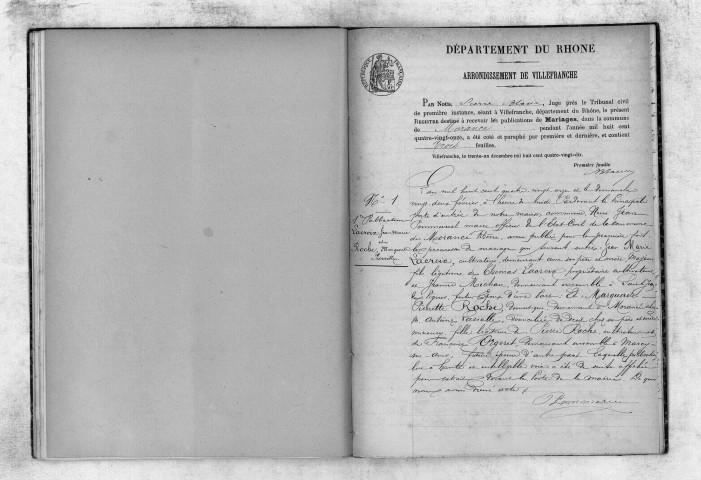 DÉPARTEMENT DU RHONE
ARRONDISSEMENT DE VILLEFRANCHE
PAR NOUS, Pierre Juge près le Tribunal civil
de première instance, séant à Villefranche, département du Rhône, le présent
REGISTRE destiné à recevoir les publications de Mariages, dans la commune
de Morancé pendant l'année mil huit cent
quatre-vingt-onze, a été coté et paraphé par première et dernière, et contient
trois feuilles.
Villefranche, le trente-un décembre mil huit cent quatre-vingt-dix.
Première feuille
N° 1
1re Publication
Lacroix Jean Marie
et
Roche, Marguerite
Pierrette
L'an mil huit cent quatre vingt onze et le dimanche
vingt deux février, à l'heure de midi. Par devant la principale
porte d'entrée de notre maison commune, Nous Jean
Pommarel maire officier de l'État Civil de la commune
de Morancé Rhône, avons publié pour la première fois
les promesses de mariage qui suivent entre: Jean Marie
Lacroix, cultivateur, demeurant avec son père et mère, majeur
fils légitime de Thomas Lacroix propriétaire cultivateur
et Jeanne Michon, demeurant ensemble à
futur époux d'une part. Et Marguerite
Pierrette Roche, domestique demeurant à Morancé chez
M. Antoine domiciliée de droit chez ses père et mère
mineure, fille légitime de Pierre Roche cultivateur et
de Françoise demeurant ensemble à Marcy
sur Anse, future épouse d'autre part. Laquelle publication
lue à haute et intelligible voix a été de suite affichée
par extrait devant la porte de la mairie. De quoi
nous avons dressé acte.